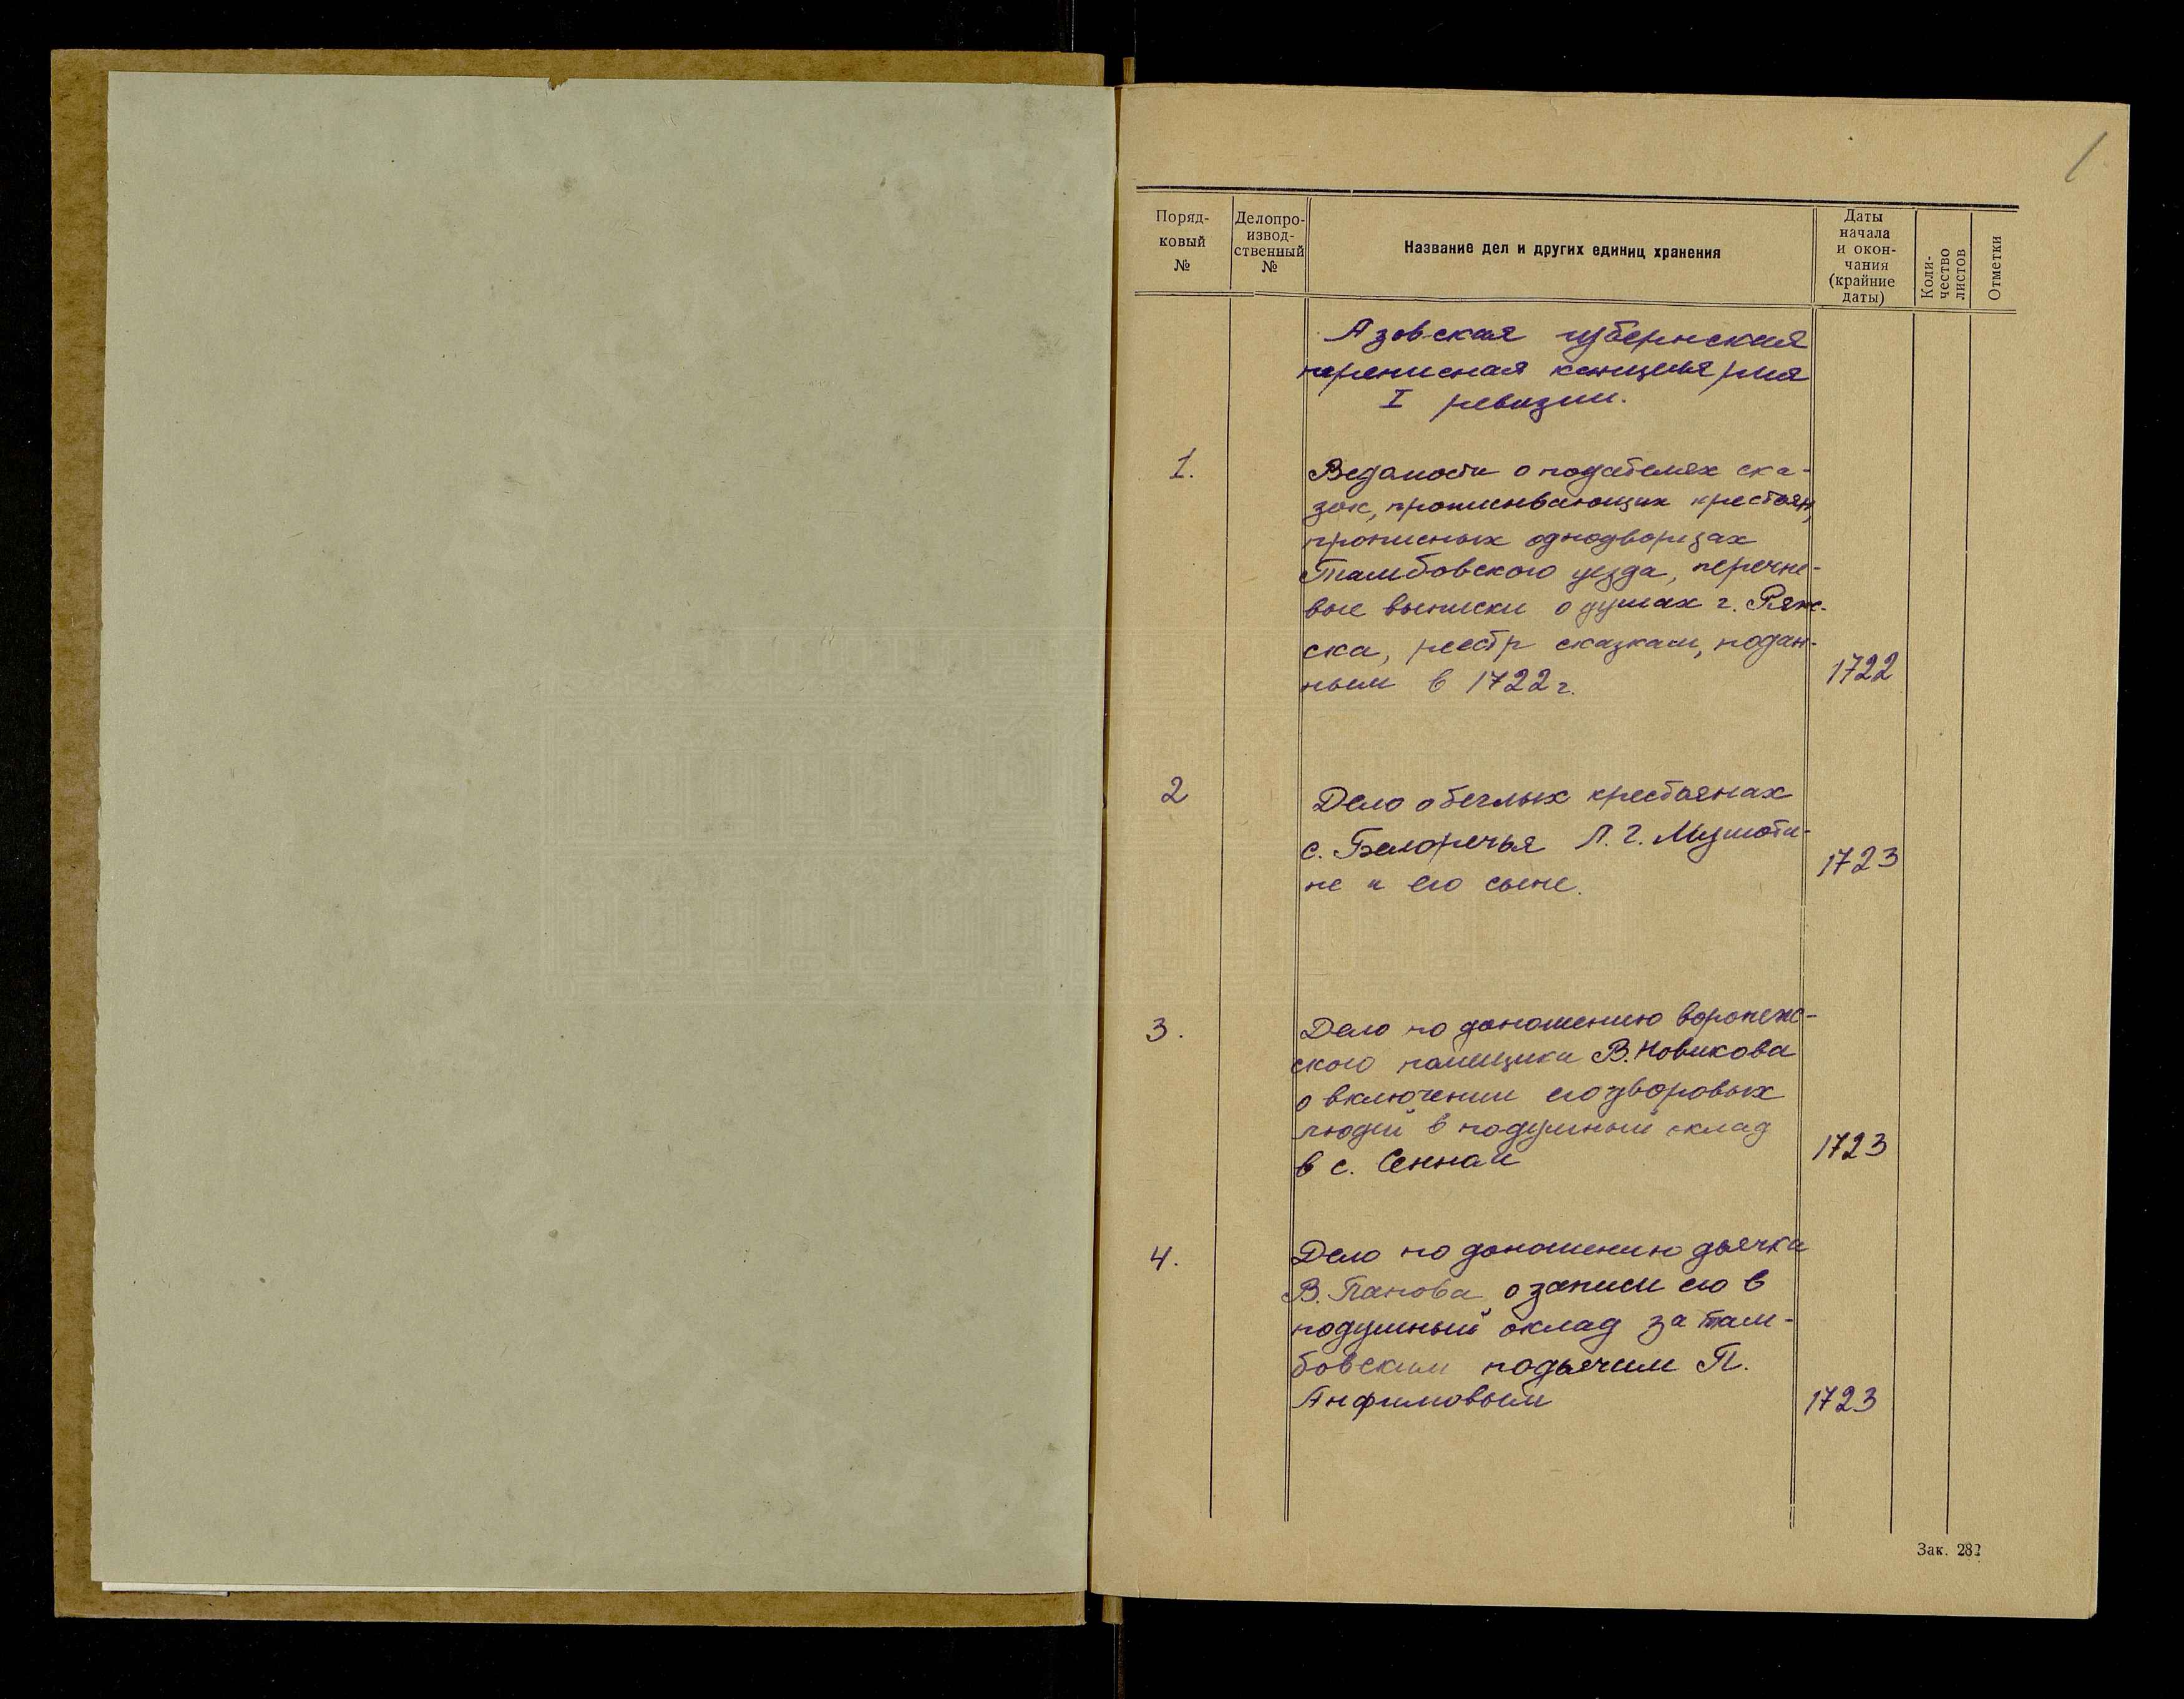 1
Поряд-
ковый
№
Делопро-
извод-
ственный
№
Название дел и других единиц хранения
Даты
начала
и окон-
чания
(крайние
даты)
Коли-
чество
листов
Отметки
Азовская губернская
переписная канцелярия
I ревизии.
1.
Ведомости о подателях ска-
зок, прописывающих крестьян,
прописных однодворцах
Тамбовского уезда, перечне-
вые выписки о душах г. Ряж-
ска, реестр сказкам, подан-
ным в 1722 г.
1722
2
Дело о беглых крестьянах
с. Белоречья Л. Г.
не и его сыне.
1723
3.
Дело по доношению воронеж-
ского помещика В. Новикова
о включении его дворовых
людей в подушный оклад
в с. Сенная
1723
4.
Дело по доношению дьячка
В. Панова о записи его в
подушный оклад за там-
бовским подьячим П.
Анфимовым
1723
Зак. 282